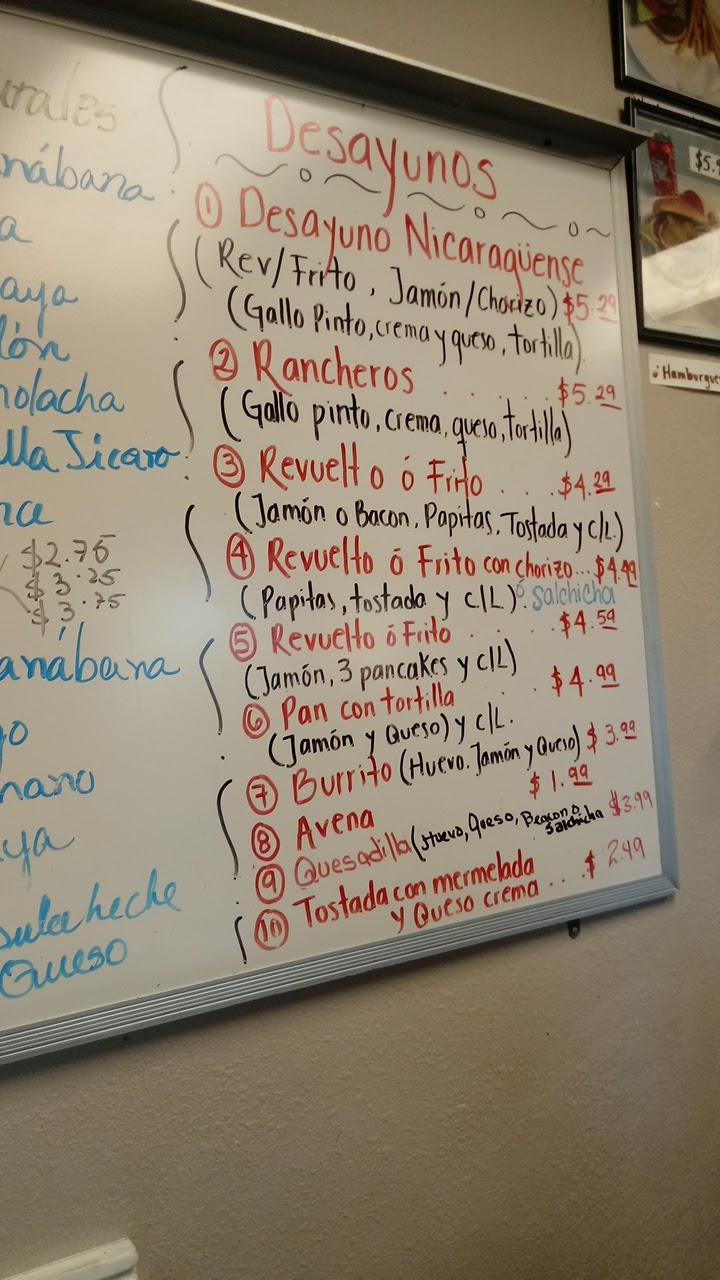 Desayunos
① Desayuno Nicaragüense
(Rev/Frito, Jamón/Chorizo) $5.29
(Gallo Pinto, crema y queso, tortilla)
② Rancheros . . . . . . $5.29
(Gallo pinto, crema, queso, tortilla)
③ Revuelto ó Frito . . . $4.29
(Jamón o Bacon, Papitas, Tostada y c/L)
④ Revuelto ó Frito con chorizo... $4.49
(Papitas, tostada y c/L) ó Salchicha
⑤ Revuelto ó Frito . . . . $4.59
(Jamón, 3 pancakes y c/L)
⑥ Pan con tortilla $4.99
(Jamón y Queso) y c/L.
⑦ Burrito (Huevo. Jamón y Queso) $3.99
⑧ Avena $1.99
⑨ Quesadilla (Huevo, Queso, Beacon o Salchicha $3.99
⑩ Tostada con mermelada
y Queso crema ... $2.49
urales
nábana
a
aya
lón
nolacha
lla Jicaro
na
$2.75
$3.25
$3.75
anábana
go
nano
ya
Queso
$5.
Hamburgue